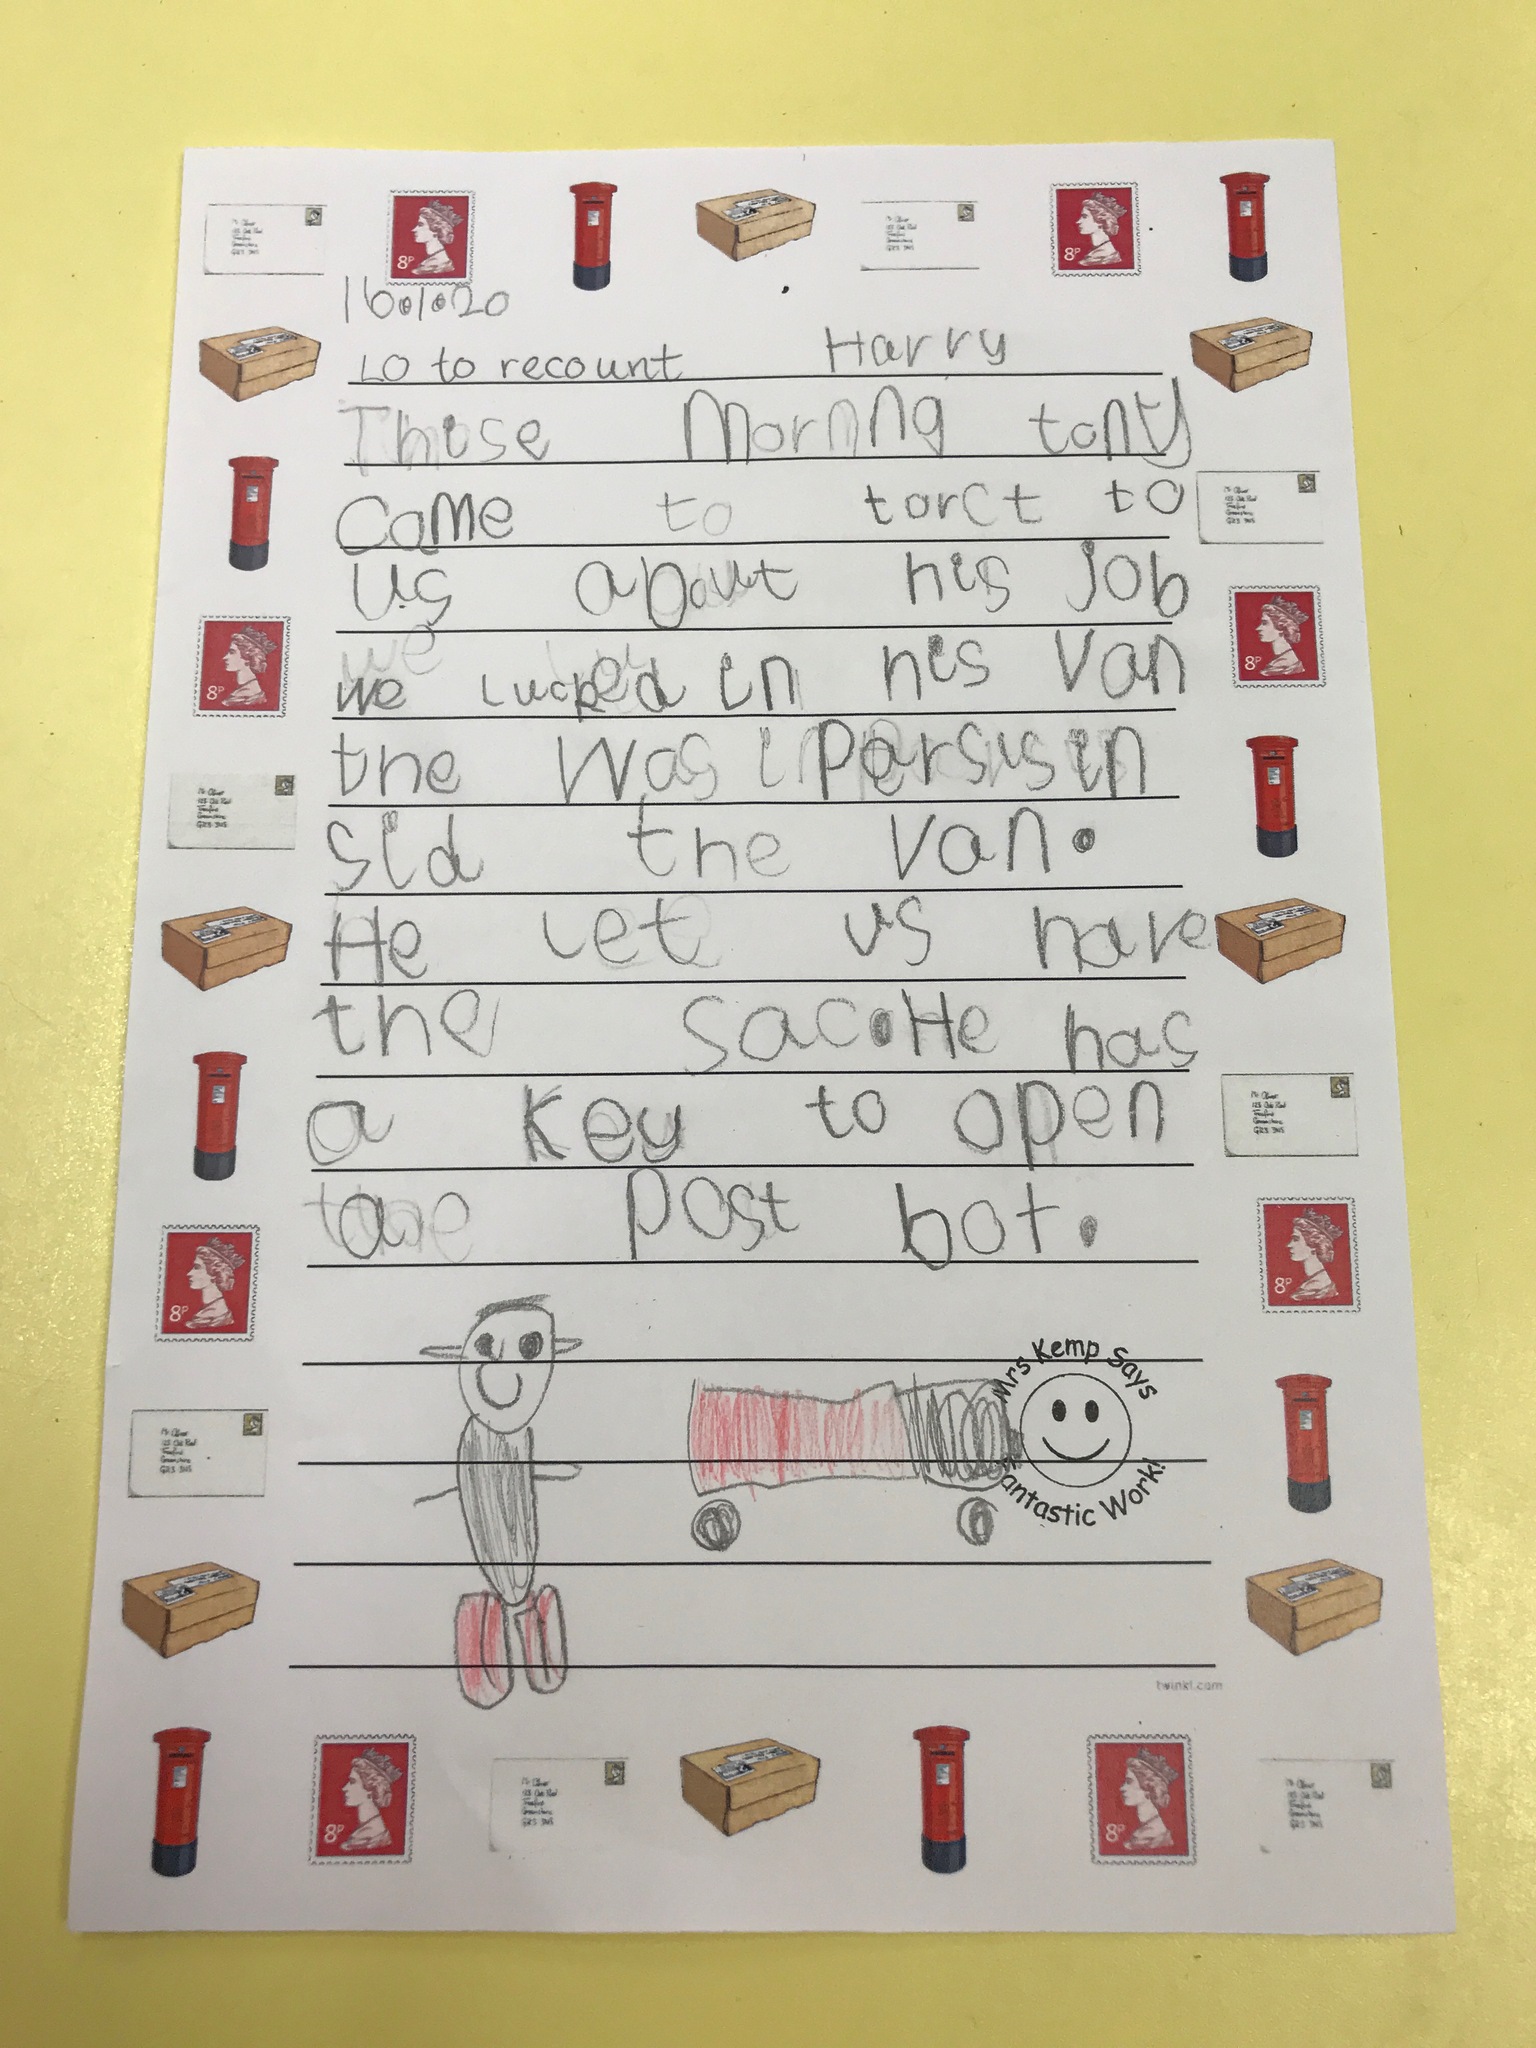 16.1.20
LO to recount Harry
Thise Mornng tony
Came to torct to
us about his job
we lucked in his Van
the Was Parsis in
sid the van.
He let us have
the sac. He has
a key to open
the post bot.
Mrs Kemp Says
Fantastic Work!
twinkl.com
8P
8P
8P
8P
8P
8P
8P
8P